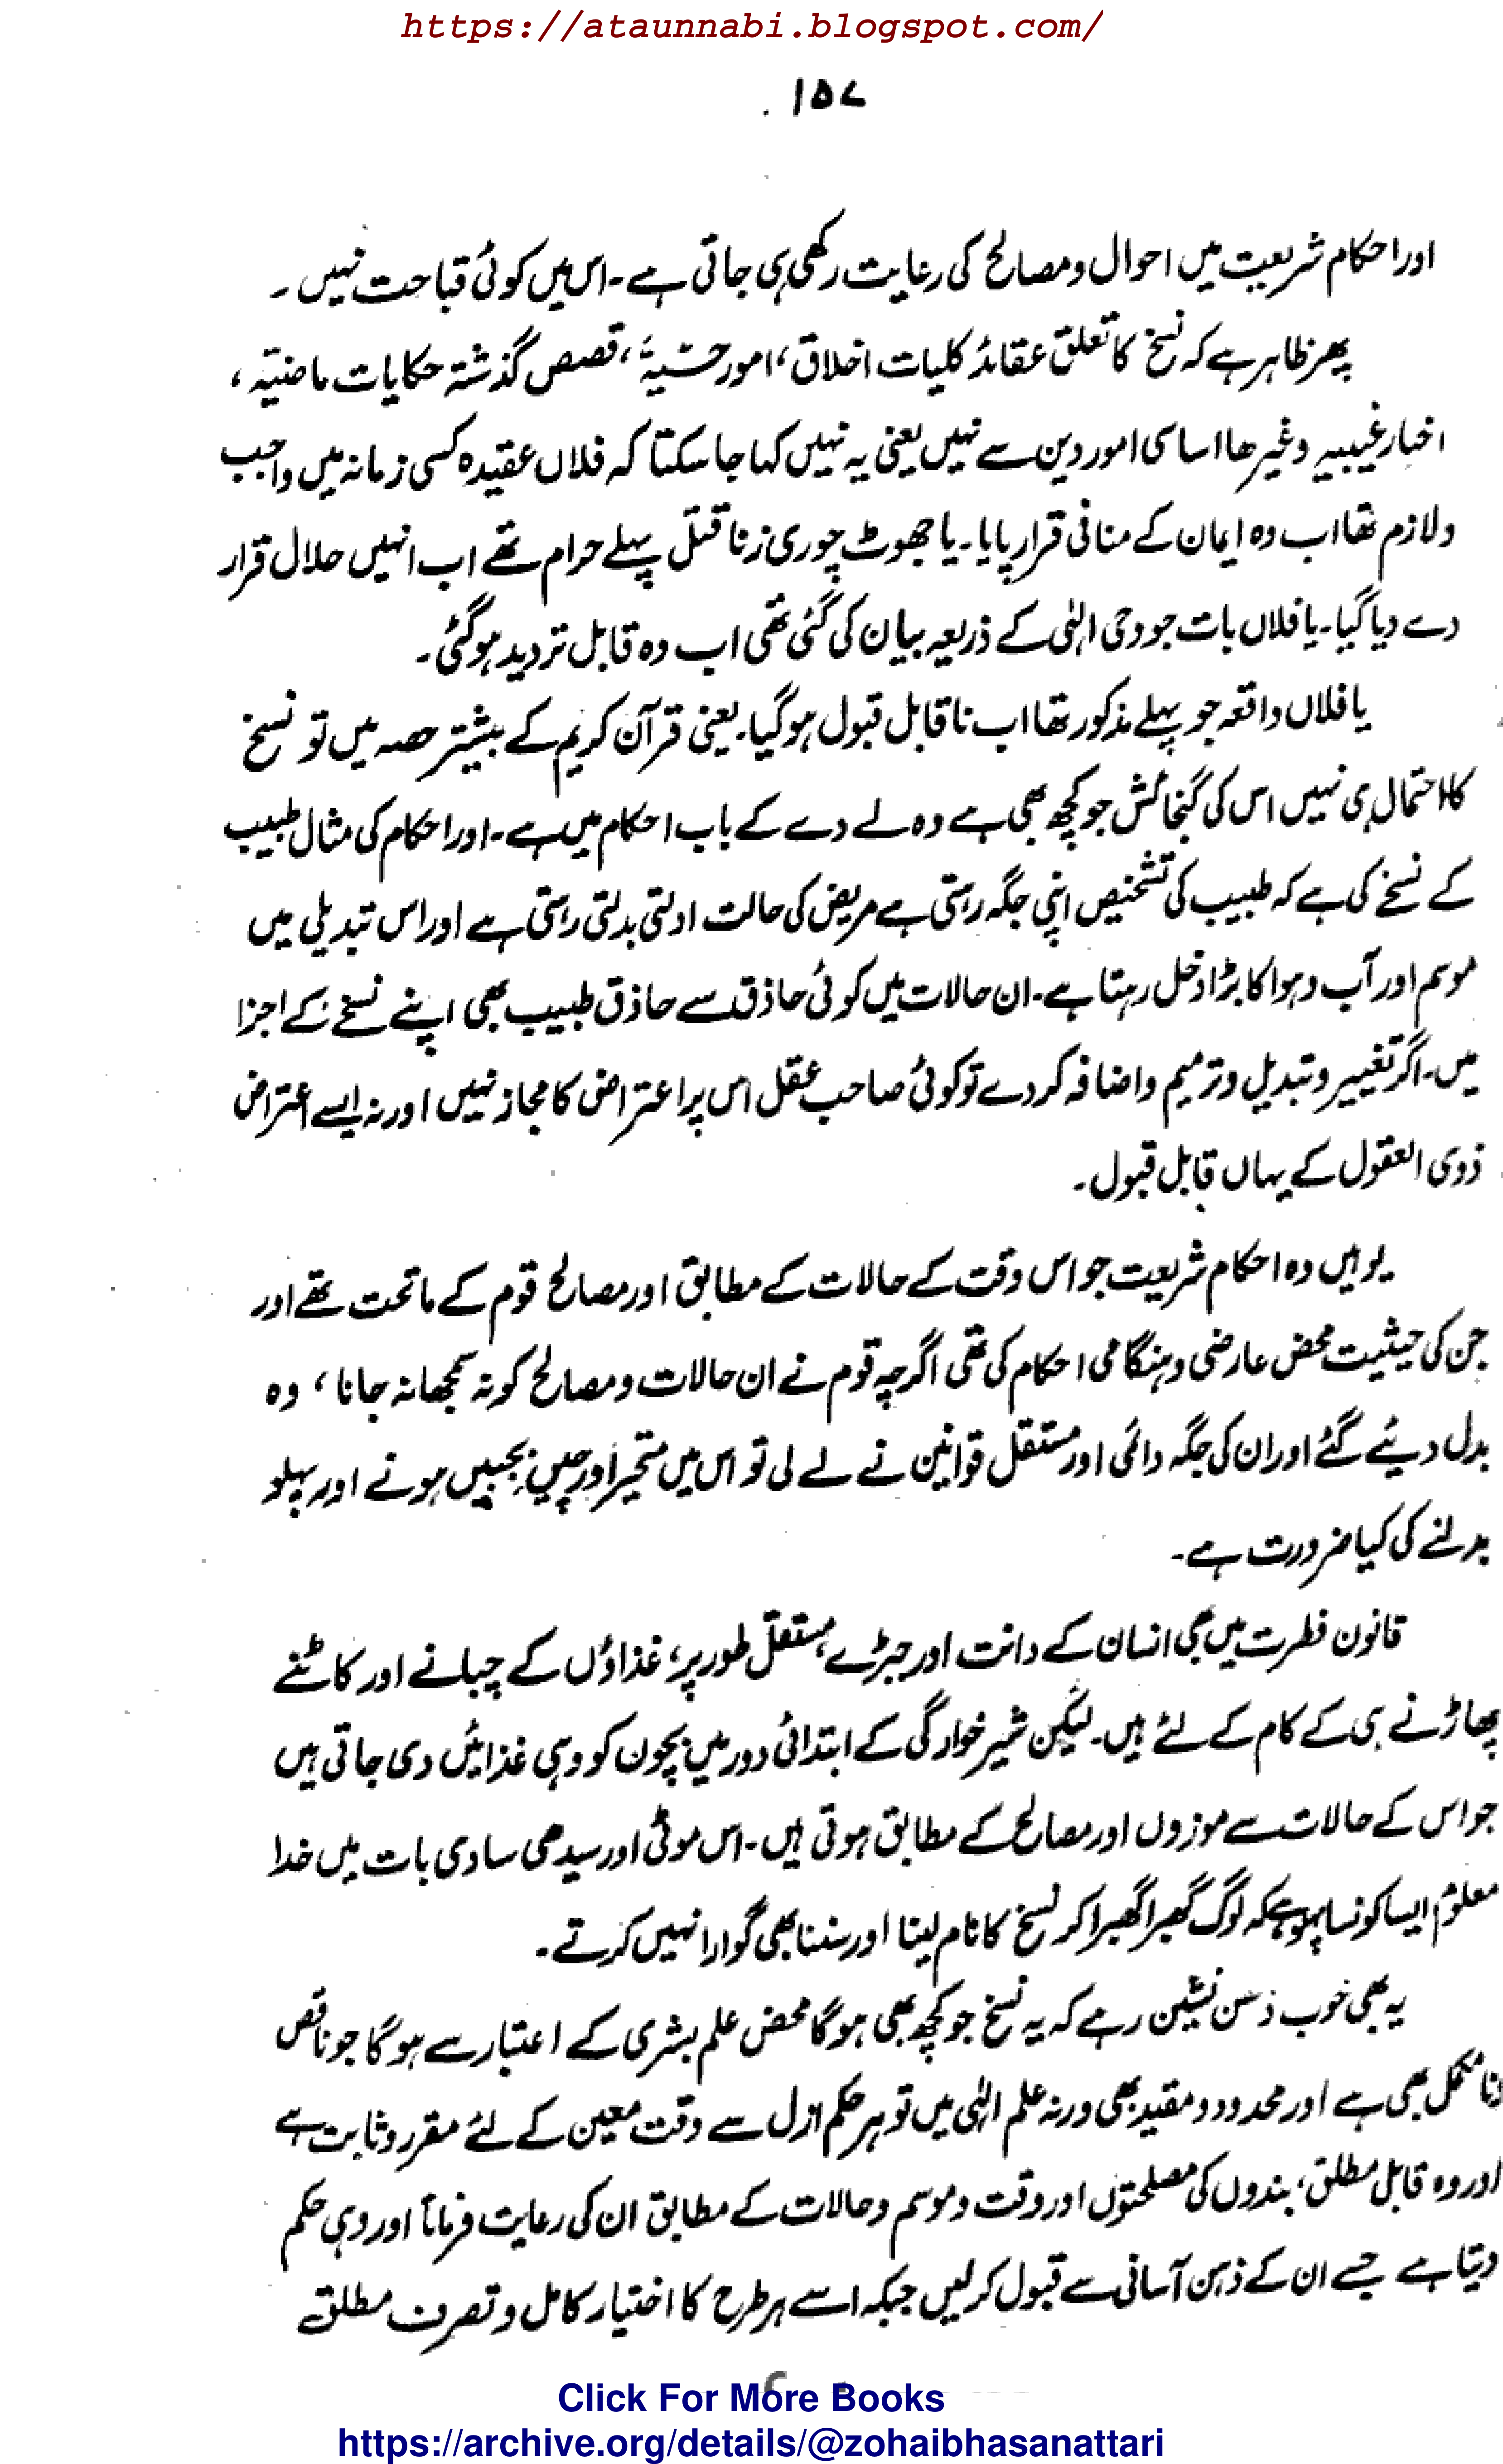 https://ataunnabi.blogspot.com/
۱۵۷
اور احکام شریعت میں احوال و مصالح کی رعایت رکھی ہی جاتی ہے۔ اس میں کوئی قباحت نہیں۔
پھر ظاہر ہے کہ نسخ کا تعلق عقائد کلیات اخلاق، امور حسّیہ، قصص گذشتہ حکایات ماضیّہ،
اخبار غیبیہ وغیرھا اساسی امور دین سے نہیں یعنی یہ نہیں کہا جا سکتا کہ فلاں عقیدہ کسی زمانہ میں واجب
ولازم تھا اب وہ ایمان کے منافی قرار پایا۔ یا جھوٹ چوری زنا قتل پہلے حرام تھے اب انہیں حلال قرار
دے دیا گیا۔ یا فلاں بات جو وحی الہٰی کے ذریعہ بیان کی گئی تھی اب وہ قابل تردید ہوگئی۔
یا فلاں واقعہ جو پہلے مذکور تھا اب ناقابل قبول ہوگیا۔ یعنی قرآن کریم کے بیشتر حصہ میں تو نسخ
کا احتمال ہی نہیں اس کی گنجائش جو کچھ بھی ہے وہ لے دے کے باب احکام میں ہے۔ اور احکام کی مثال طبیب
کے نسخے کی ہے کہ طبیب کی تشخیص اپنی جگہ رہتی ہے مریض کی حالت ادلتی بدلتی رہتی ہے اور اس تبدیلی میں
موسم اور آب و ہوا کا بڑا دخل رہتا ہے۔ ان حالات میں کوئی حاذق سے حاذق طبیب بھی اپنے نسخے کے اجزا
میں۔ اگر تغییر و تبدیل و ترمیم و اضافہ کر دے تو کوئی صاحب عقل اس پر اعتراض کا مجاز نہیں اور نہ ایسے اعتراض
ذوی العقول کے یہاں قابل قبول۔
یوہیں وہ احکام شریعت جو اس وقت کے حالات کے مطابق اور مصالح قوم کے ماتحت تھے اور
جن کی حیثیت محض عارضی و ہنگامی احکام کی تھی اگرچہ قوم نے ان حالات و مصالح کو نہ سمجھا نہ جانا، وہ
بدل دیئے گئے اور ان کی جگہ دائمی اور مستقل قوانین نے لے لی تو اس میں متحیر اور چیں بجبیں ہونے اور پہلو
بدلنے کی کیا ضرورت ہے۔
قانون فطرت میں بھی انسان کے دانت اور جبڑے، مستقل طور پر، غذاؤں کے چبانے اور کاٹنے
پھاڑنے ہی کے کام کے لئے ہیں۔ لیکن شیر خوارگی کے ابتدائی دور میں بچوں کو وہی غذائیں دی جاتی ہیں
جو اس کے حالات سے موزوں اور مصالح کے مطابق ہوتی ہیں۔ اس موٹی اور سیدھی سادی بات میں خدا
معلوم ایسا کونسا ہے کہ لوگ گھبرا گھبرا کر نسخ کا نام لینا اور سننا بھی گوارا نہیں کرتے۔
یہ بھی خوب ذہن نشین رہے کہ یہ نسخ جو کچھ بھی ہوگا محض علم بشری کے اعتبار سے ہوگا جو ناقص
ونا مکمل بھی ہے اور محدود و مقید بھی ورنہ علم الہٰی میں تو ہر حکم ازل سے وقت معین کے لئے مقرر و ثابت ہے
اور وہ قابل مطلق، بندوں کی مصلحتوں اور وقت و موسم و حالات کے مطابق ان کی رعایت فرماتا اور وہی حکم
دیتا ہے جسے ان کے ذہن آسانی سے قبول کرلیں جبکہ اسے ہر طرح کا اختیار کامل و تصرف مطلق ہے
Click For More Books
https://archive.org/details/@zohaibhasanattari